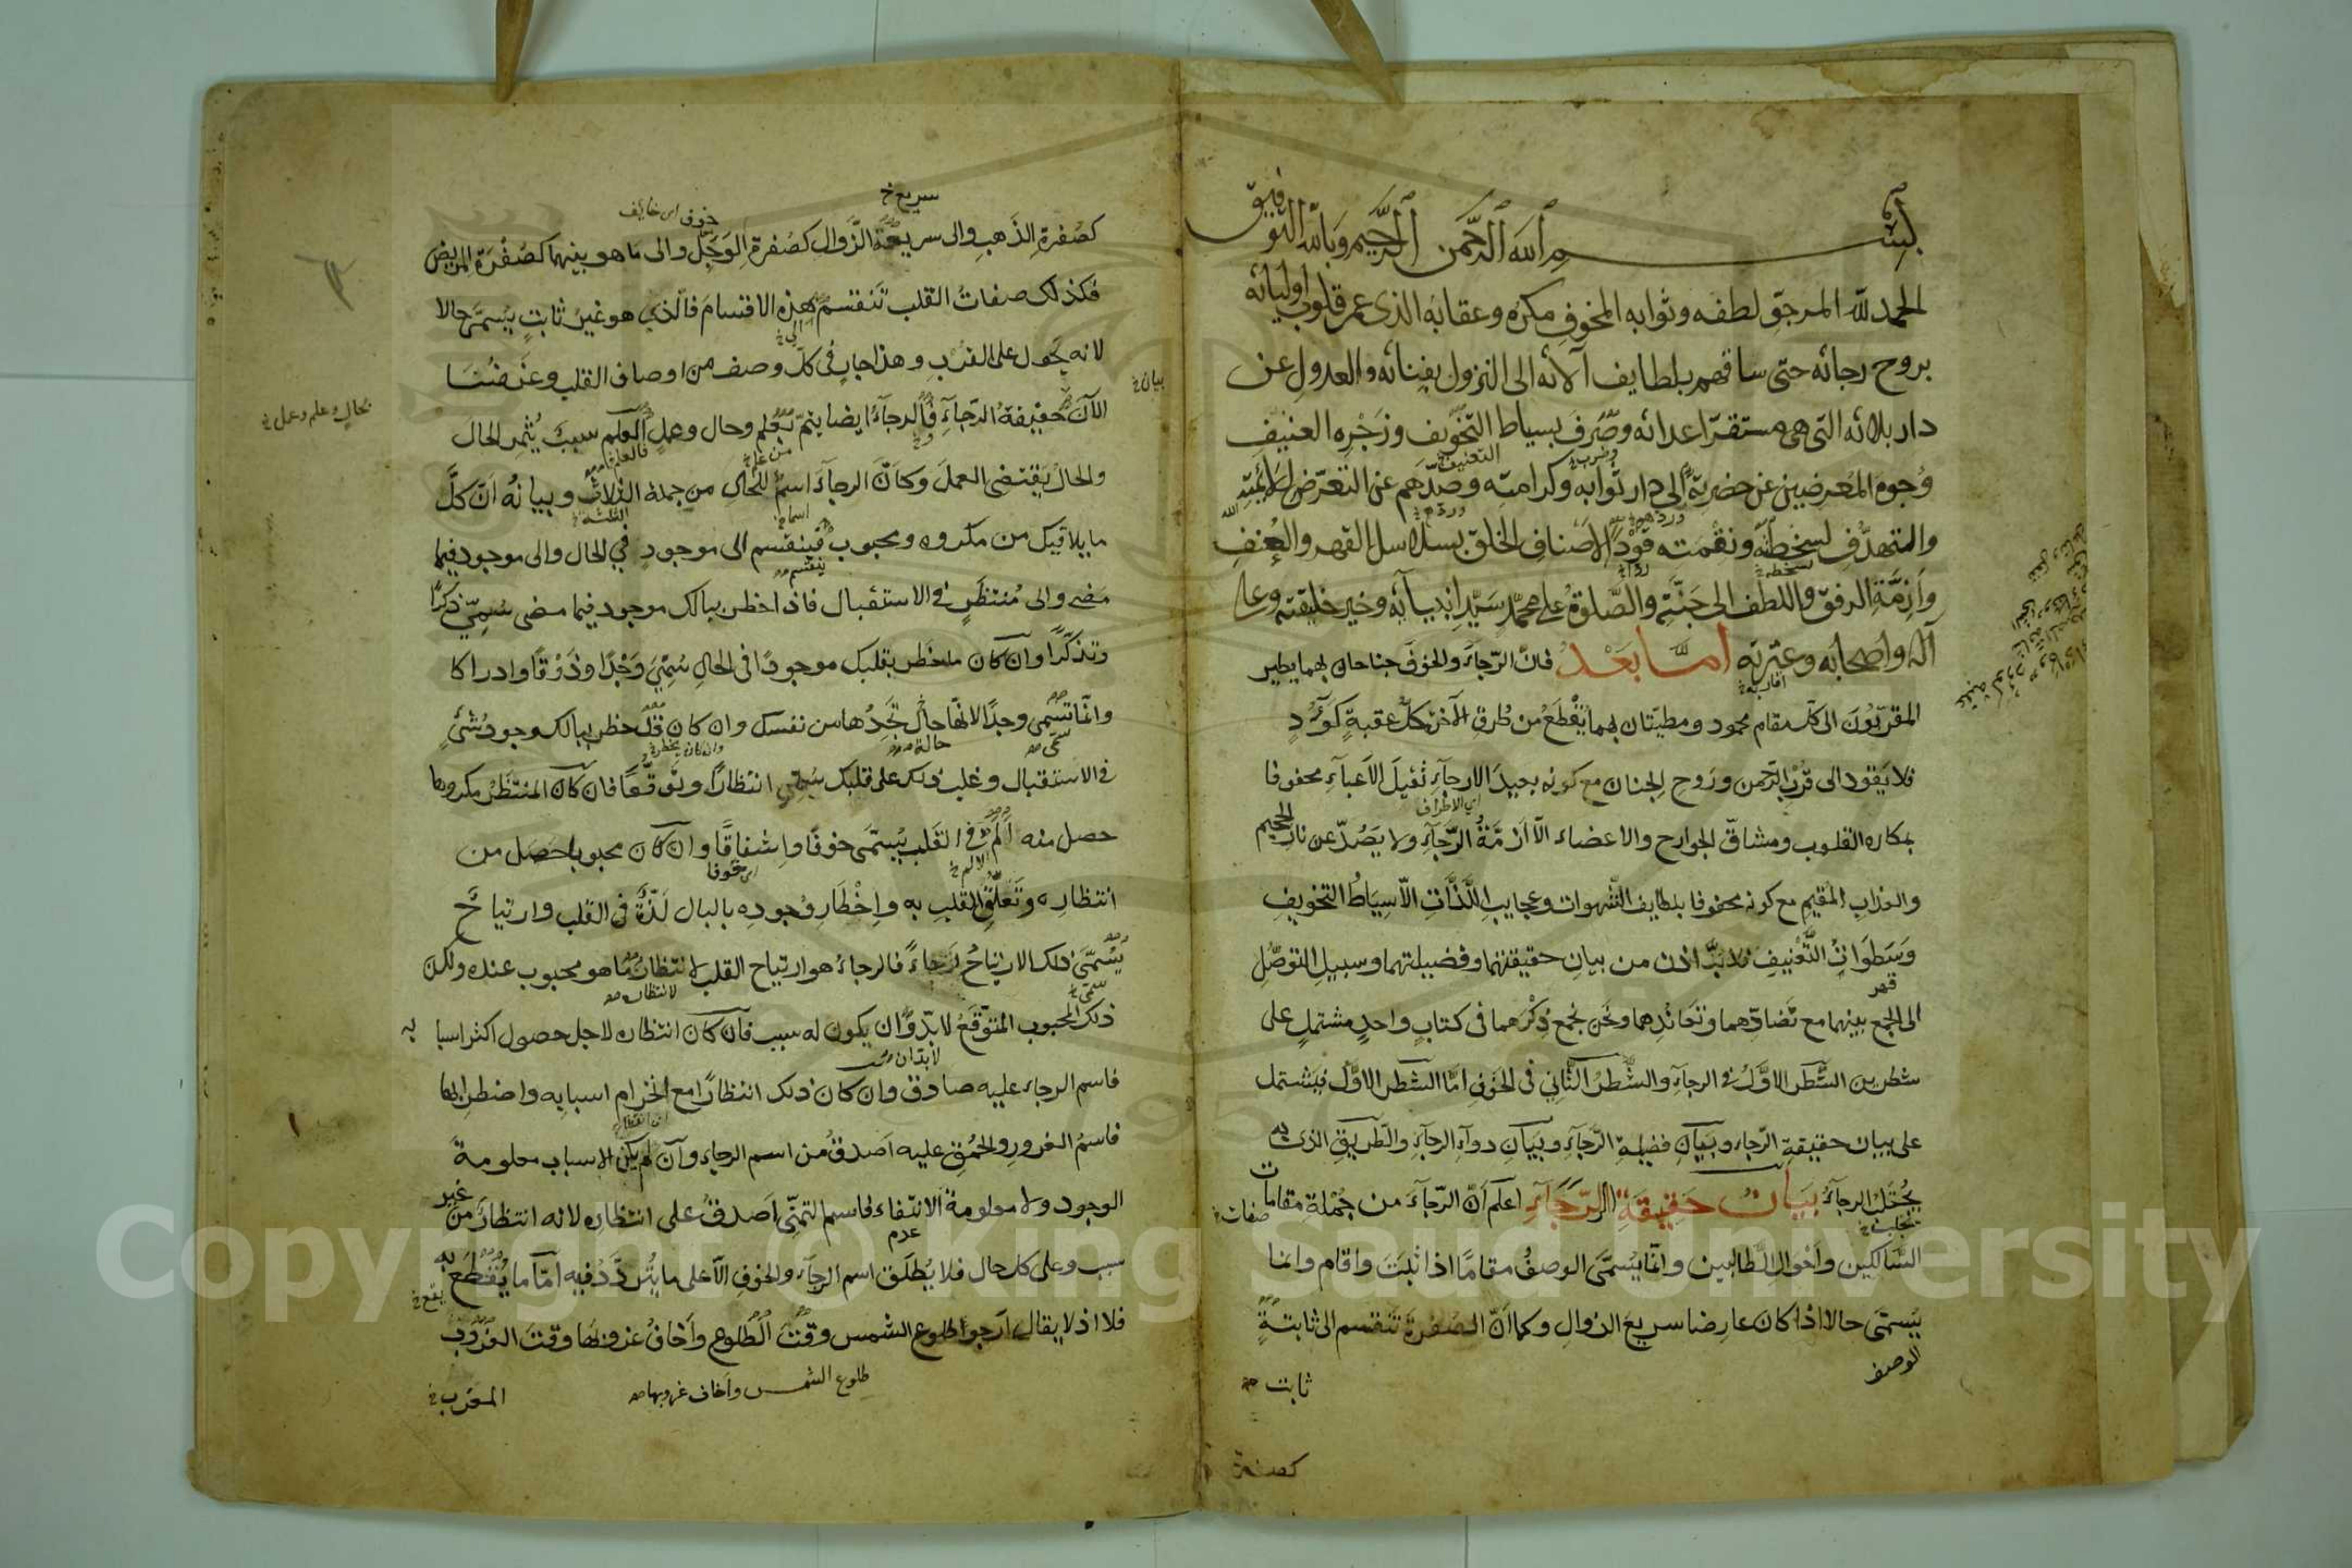 بسم الله الرحمن الرحيم وبالله التوفيق
الحمد لله المرجوّ لطفه وثوابه المخوفِ مكرُه وعقابَه الذى عمر قلوب اوليائه
بروح رجائه حتى ساقهم بلطايف آلائه الى النزول بفنائه والعدولِ عن
دار بلائه التى هى مستقرّ اعدائه وصَرفَ بسياط التخويف وزَجْرِه العنيفِ
وضرب
التعنيف
وُجوهَ المُعرِضين عن حضرته الى دار ثوابه وكرامته وصدّهم عن التعرّض لِلائِمَّتِه
وردهم
والتهدُّفِ لسخطه ونقمته قودًا لاصنافِ الخلق بسلاسل القهر والعُنفِ
بسخطه
وَازِمَّةِ الرفق واللطف الى جَنّتِه والصَّلوةُ على محمّدٍ سَيّدِ انبيآئه وخير خليقته وعلى
آله واصحابه وعِترته امّا بَعْدُ فانّ الرّجآءَ والخوفَ جناحان بهما يطير
اقاربه
المقرّبُونَ الى كلّ مقام محمود ومطيّتان بهما يُقْطَعُ من طُرقِ الآخرة كلُّ عقبةٍ كَؤُدٍ
فلا يَقود الى قُرْبِ الرّحمن ورَوح الجنان مع كونه بعيدَ الارجآءِ ثقيلَ الاعبآءِ محفوفا
اى الاطراف
بمكاره القلوب ومشاقّ الجوارح والاعضاء الّا ازمَّةُ الرّجآءِ ولا يَصُدّ عن نار الجحيم
والعذابِ المقيمِ مع كونه محفوفا بلطايف الشهوات وعجايبِ اللّذّاتِ الّا سِيَاطُ التخويفِ
وَسَطَوَاتُ التَّعْنيفِ فلا بدّ اذن من بيانِ حقيقتهما وفضيلتهما وسبيلِ التوصّلِ
قهر
الى الجمع بينهما مع تَضادّهما وتعاندهما ونحن نجمع ذِكْرَهما فى كتابٍ واحدٍ مشتملٍ على
شطرين الشَّطرُ الاوَّلُ فى الرجآءِ والشَّطرُ الثّانى فى الخوفِ امّا الشطر الاوّل فيشتمل
على بيان حقيقةِ الرّجاء وبيانِ فضيلةِ الرّجآءِ وبَيَانِ دوآءِ الرجآءِ والطّريقِ الذى به
يُجْتَلَبُ الرجآءُ بَيَانُ حَقيقَةِ الرَّجَآءِ اعلم اَنّ الرّجآءَ من جُمْلةِ مقامات
صفات
السّالكين واَحْوالِ الطّالبين وانّما يُسَمَّى الوصفُ مقامًا اذا ثبَتَ واقام وانما
يُسَمَّى حالا اذا كان عارضا سريعَ الزوالِ وكما اَنّ الصُفرةَ تَنقسم الى ثابتةٍ
الوصف
ثابت
كصفرة
سريع
خوف اى خايف
كصُفرةِ الذّهبِ والى سريعة الزّوال كصُفرةِ الوَجَلِ والى ما هو بينهما كصُفْرَةِ المريض
فكذلك صفاتُ القلب تَنقسمُ هذه الاقسامَ فالّذى هو غيرُ ثابتٍ يُسمَّى حالا
لانه يَحول على القُرْبِ وهذا جارٍ فى كلّ وصف من اوصاف القلب وغَرضُنا
بيان
الآنَ حقيقةُ الرّجآءِ فالرجآءُ ايضا يتمّ بعلم وحال وعملٍ فالعلم سببٌ يُثمِر الحالَ
بحالٍ وعلم وعمل
والحالُ يَقتضى العملَ وكاَنّ الرجآءَ اسمٌ للحال من جملة الثلاثِ وبيانُه اَنّ كلَّ
الثلثة
ما يلاقيك من مكروه ومحبوب فينقسم الى موجودٍ فى الحال والى موجود فيما
ينقسم
مضى والى مُنتظَرٍ فى الاستقبال فاذا خطر ببالك موجود فيما مضى سُمِّىَ ذكرًا
وتذكّرًا وان كان ما خطر بقلبك موجودًا فى الحالِ سُمِّىَ وَجْدًا وذَوْقًا وادراكا
وانّما تسمى وجدًا لانّها حالٌ تَجِدُها من نفسك وان كان قد خطر ببالك وجودُ شئٍ
حالة
فى الاستقبال وغلب ذلك على قلبك سُمّى انتظارًا وتَوقّعًا فان كان المنتظَرُ مكروها
حصل منه اَلَم فى القَلب يُسمَّى خوفًا واِشفاقًا وان كان محبوبا حصل من
انتظارِه وتَعلّقِ القلبِ به واِخْطارِ وُجودِه بالبال لَذّةٌ فى القلب وارتياحٌ
يُسَمَّى ذلك الارتياحُ رَجاءً فالرجاءُ هو ارتياح القلب لانتظار ما هو محبوب عنده ولكن
لانتظاره
ذلك المحبوب المتوقَّعُ لا بدّ وان يكون له سبب فان كان انتظاره لاجل حصول اكثر اسبا به
لا بد ان
فاسم الرجاء عليه صادق وان كان ذلك انتظارًا مع انخرام اسبابِه واضطرابها
فاسمُ الغرورِ والحُمْقِ عليه اَصدقُ من اسم الرجاءِ وان لم يكن الاسباب معلومةَ
الوجود ولا معلومةَ الانتفاء فاسم التمنّى اَصدقُ على انتظارِه لانه انتظارٌ من غير
عدم
سبب وعلى كل حال فلا يُطلَق اسم الرجآءِ والخوفِ الّا على ما يُتَردَّدُ فيه امّا ما يُقْطَعُ به
فلا اذ لا يقال اَرجو طلوع الشمس وقْتَ الطُلوعِ واَخافُ غروبَها وقتَ الغروبِ
طلوع الشمس واَخاف غروبها
المغرب
Copyright © King Saud University